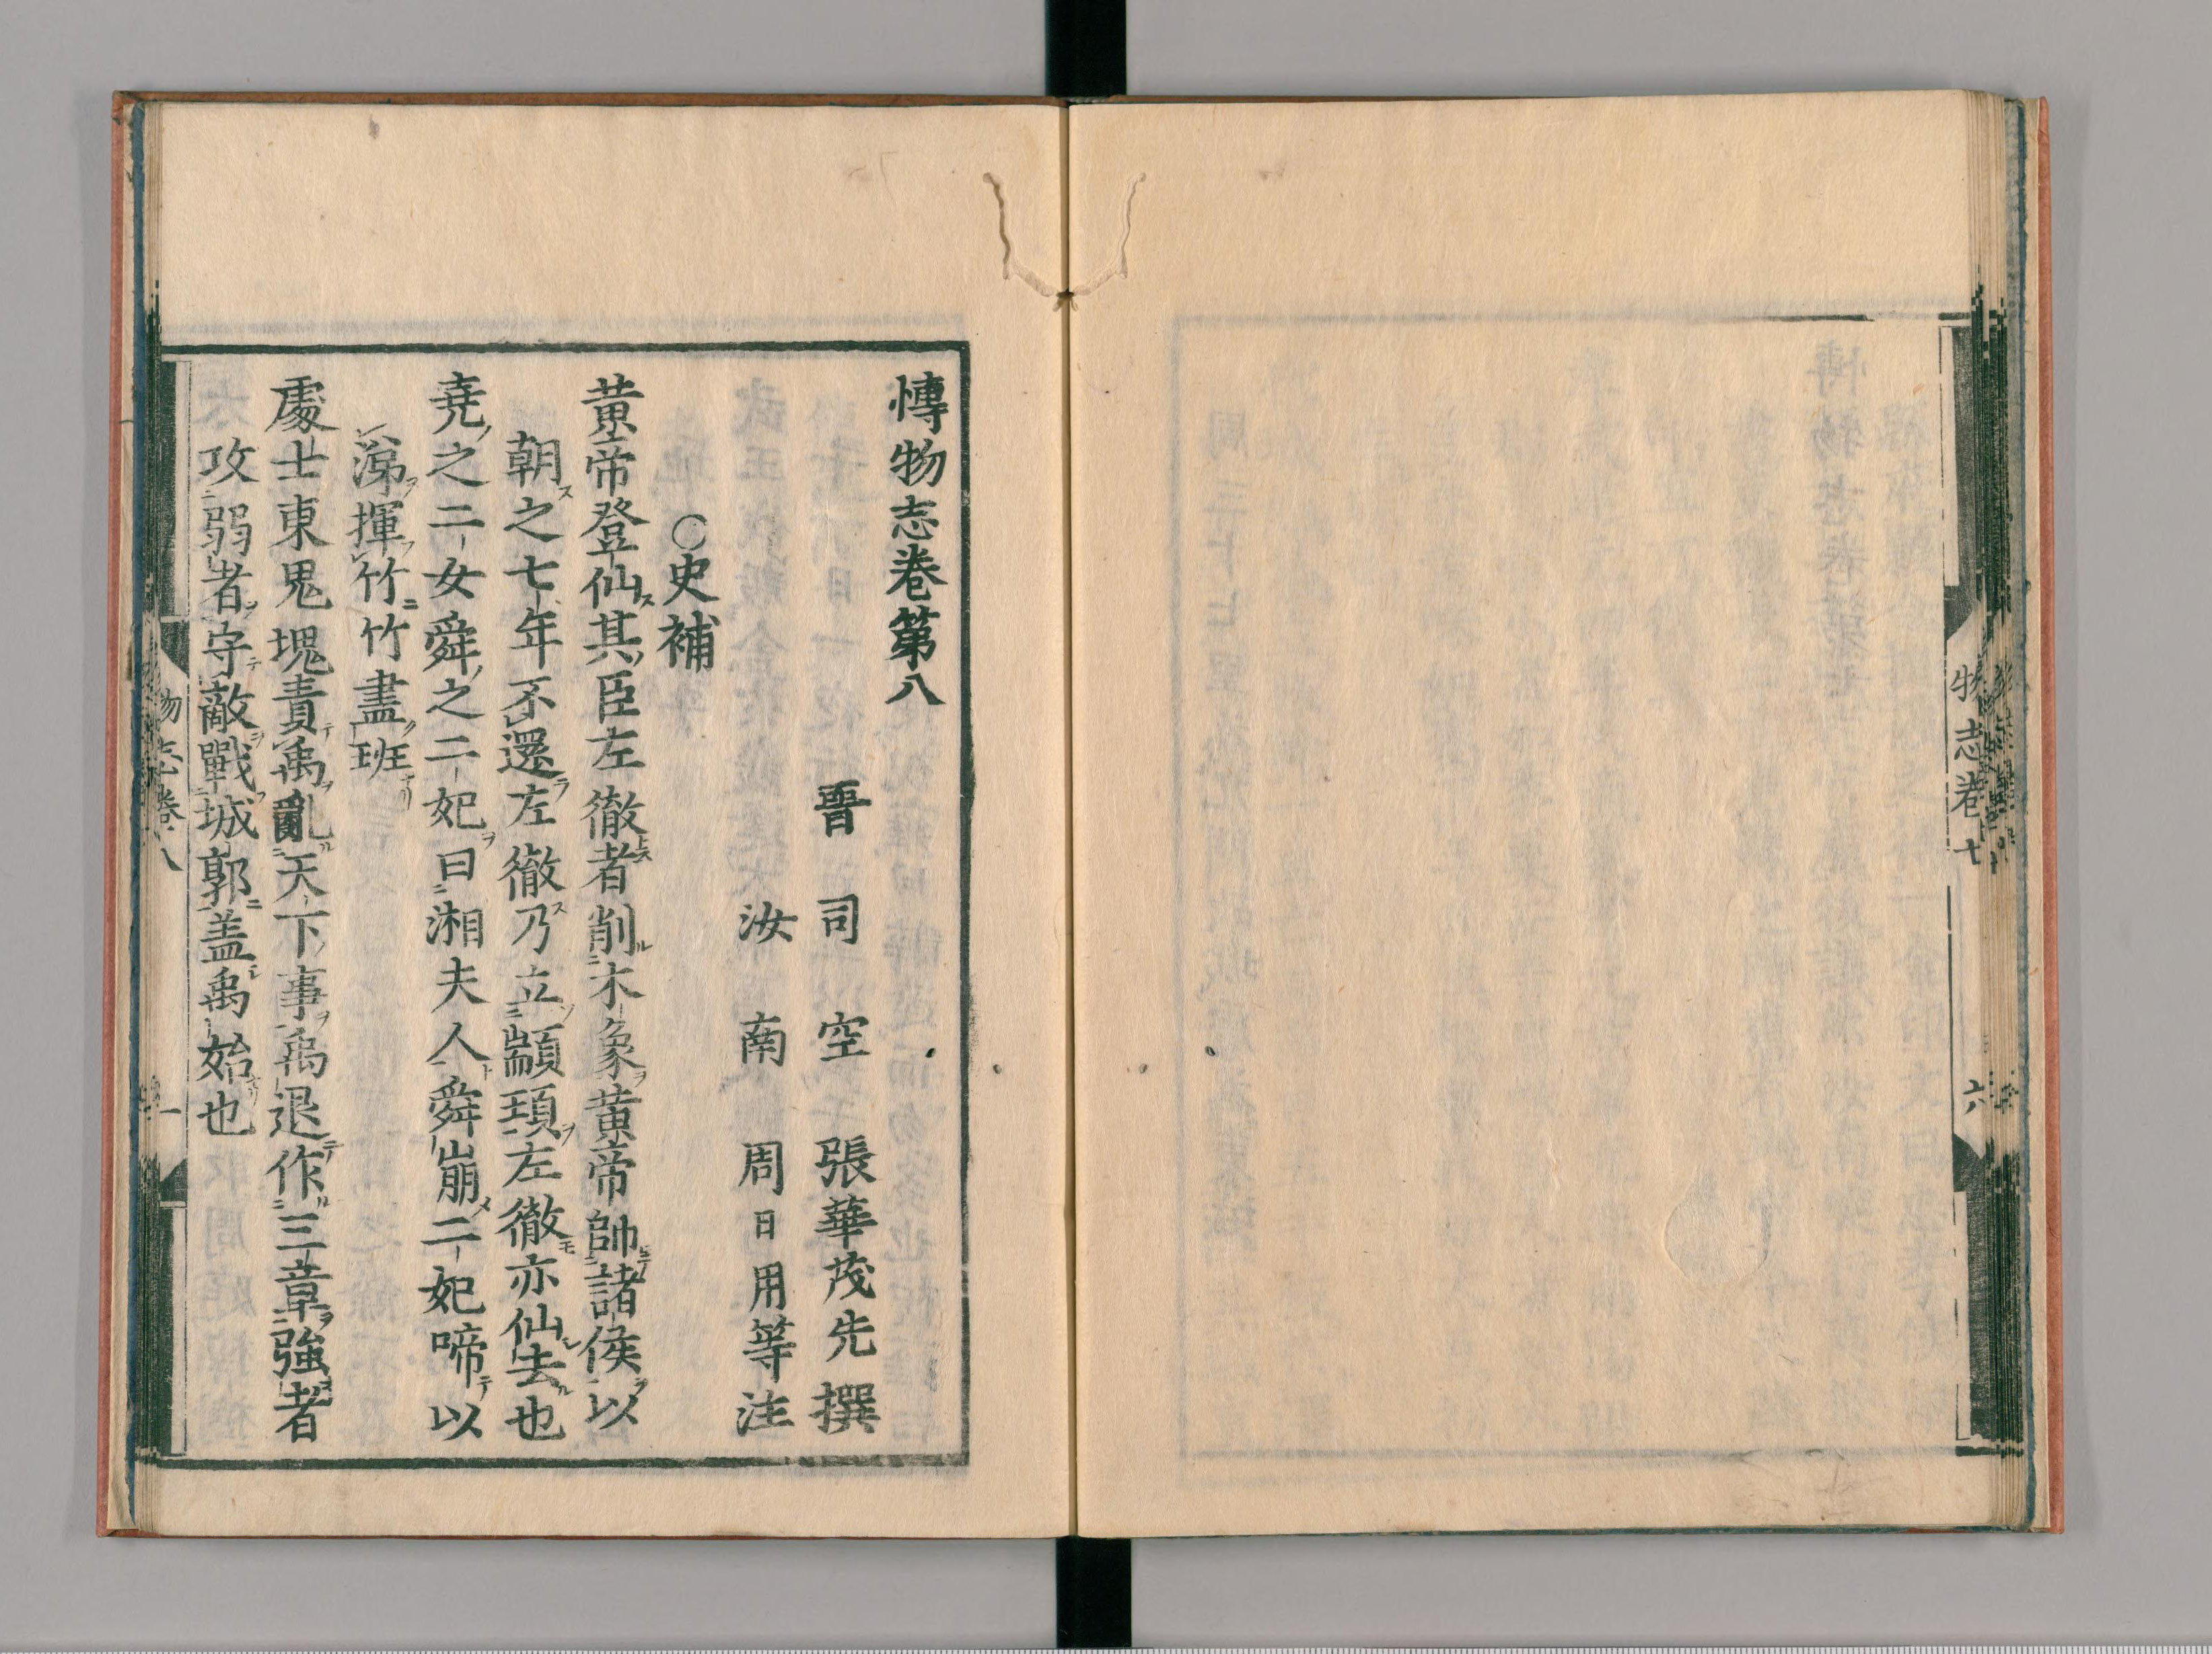 物志卷七
六
愽物志卷第八
晉司空張華茂先撰
汝南周日用等注
○史補
黄帝登仙其臣左徹者削木象黄帝帥諸侯以
朝之七年不還左徹乃立顓頊左徹亦仙去也
堯之二女舜之二妃曰湘夫人舜崩二妃啼以
涕揮竹竹盡班
處士東鬼塊責禹亂天下事禹退作三章強者
攻弱者守敵戰城郭盖禹始也
物志卷八
一